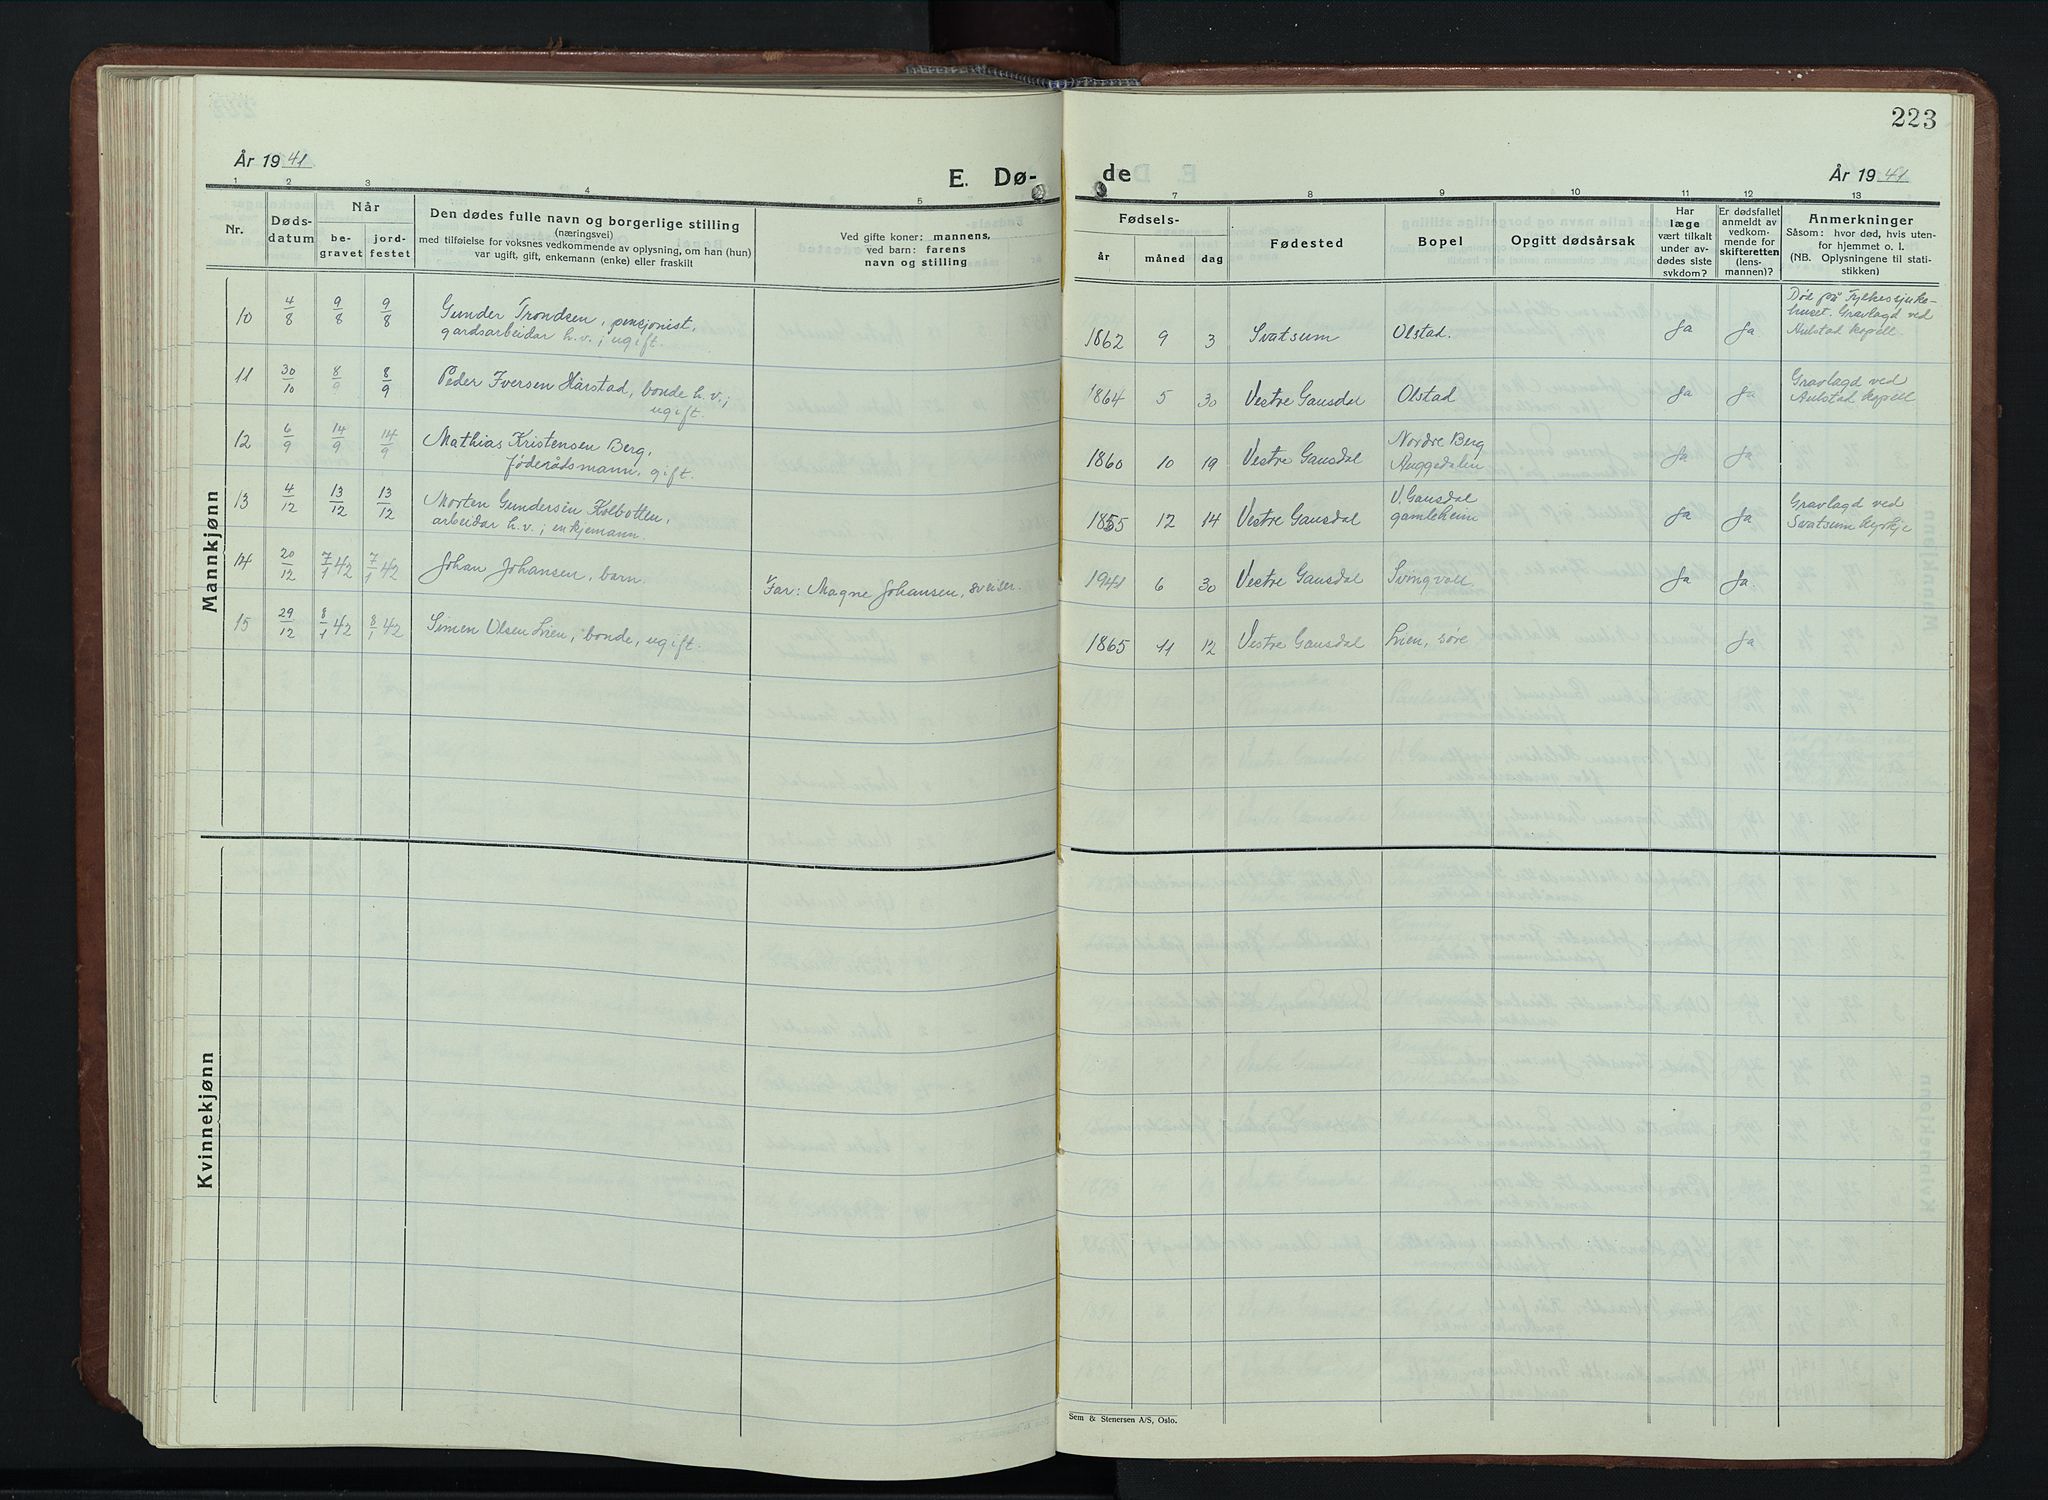 223
År 1941
E. Dø-
de
År 1941
1 2 3 4 5
7 8 9 10 11 12 13
Nr.
Døds-
datum
Når
be-
gravet
jord-
festet
Den dødes fulle navn og borgerlige stilling
(næringsvei)
med tilføielse for voksnes vedkommende av oplysning, om han (hun)
var ugift, gift, enkemann (enke) eller fraskilt
Ved gifte koner: mannens,
ved barn: farens
navn og stilling
Fødsels-
år
måned
dag
Fødested
Bopel
Opgitt dødsårsak
Har
læge
vært tilkalt
under av-
dødes siste
sykdom?
Er dødsfallet
anmeldt av
vedkom-
mende for
skifteretten
(lens-
mannen)?
Anmerkninger
Såsom: hvor død, hvis uten-
for hjemmet o. l.
(NB. Oplysningene til stati-
stikken)
Mannkjønn
10 4/8 9/8 9/8 Gunder Trondsen, pensjonist,
gardsarbeidar h.v.; ugift.
1862 9 3 Svatsum Olstad. Ja Ja
Død på Fylkessjuke-
huset. Gravlagd ved
Aulstad kapell.
11 30/10 8/9 8/9 Peder Iversen Hårstad, bonde h.v.;
ugift.
1864 5 30 Vestre Gausdal Olstad Ja Ja
Gravlagd ved
Aulstad kapell
12 6/9 14/9 14/9 Mathias Kristensen Berg,
føderådsmann, gift.
1860 10 19 Vestre Gausdal Nordre Berg
Auggedalen Ja Ja
13 4/12 13/12 13/12 Morten Gundersen Kolbotten,
arbeidar h.v.; enkjemann.
1855 12 14 Vestre Gausdal V. Gausdal
gamleheim Ja Ja
Gravlagd ved
Svatsum kyrkje
14 20/12 7/1 42 7/1 42 Johan Johansen, barn. Far: Magne Johansen, sveiser.
1941 6 30 Vestre Gausdal Svingvoll Ja Ja.
15 29/12 8/1 42 8/1 42 Simen Olsen Lien, bonde, ugift.
1865 11 12 Vestre Gausdal Lien, søre Ja
Kvinnekjønn
Sem & Stenersen A/S, Oslo.